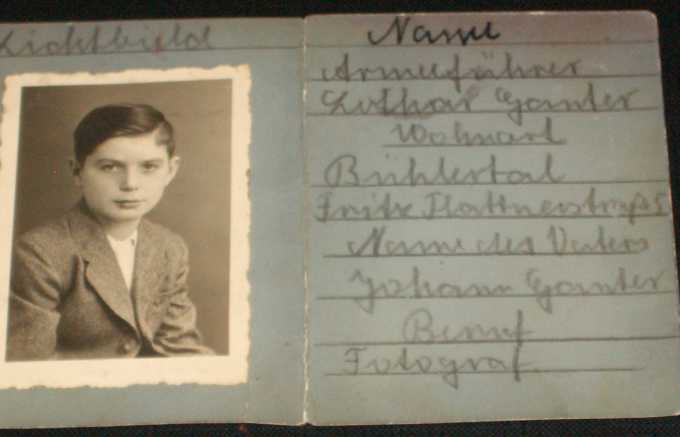 Lichtbild
Name
Armeeführer
Lothar Ganter
Wohnort
Bühlertal
Fritz Plattnerstraße 5
Name des Vaters
Johann Ganter
Beruf
Fotograf